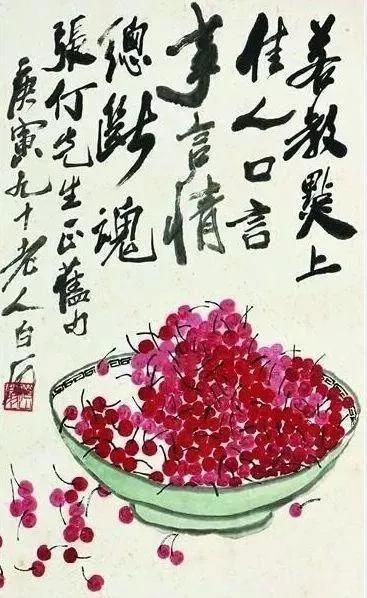 若教點上
佳人口言
事言情
總斷魂
張仃先生正舊句
庚寅九十老人白石